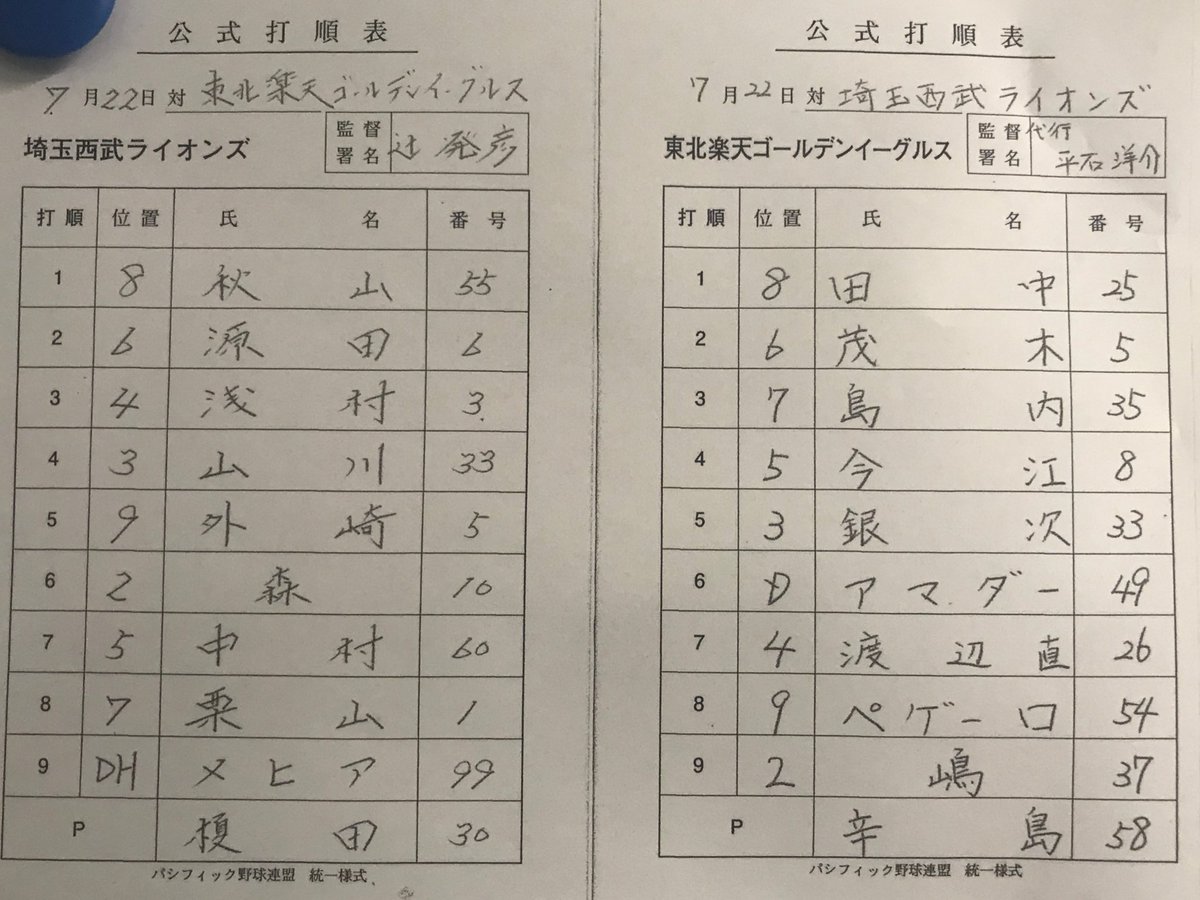 公式打順表
7月22日 対 東北楽天ゴールデンイーグルス
埼玉西武ライオンズ 監督署名 辻 発彦
打順 位置 氏名 番号
1 8 秋山 55
2 6 源田 6
3 4 浅村 3
4 3 山川 33
5 9 外崎 5
6 2 森 10
7 5 中村 60
8 7 栗山 1
9 DH メヒア 99
P 榎田 30
パシフィック野球連盟 統一様式
公式打順表
7月22日 対 埼玉西武ライオンズ
東北楽天ゴールデンイーグルス 監督署名 代行 平石洋介
打順 位置 氏名 番号
1 8 田中 25
2 6 茂木 5
3 7 島内 35
4 5 今江 8
5 3 銀次 33
6 D アマダー 49
7 4 渡辺直 26
8 9 ペゲーロ 54
9 2 嶋 37
P 辛島 58
パシフィック野球連盟 統一様式